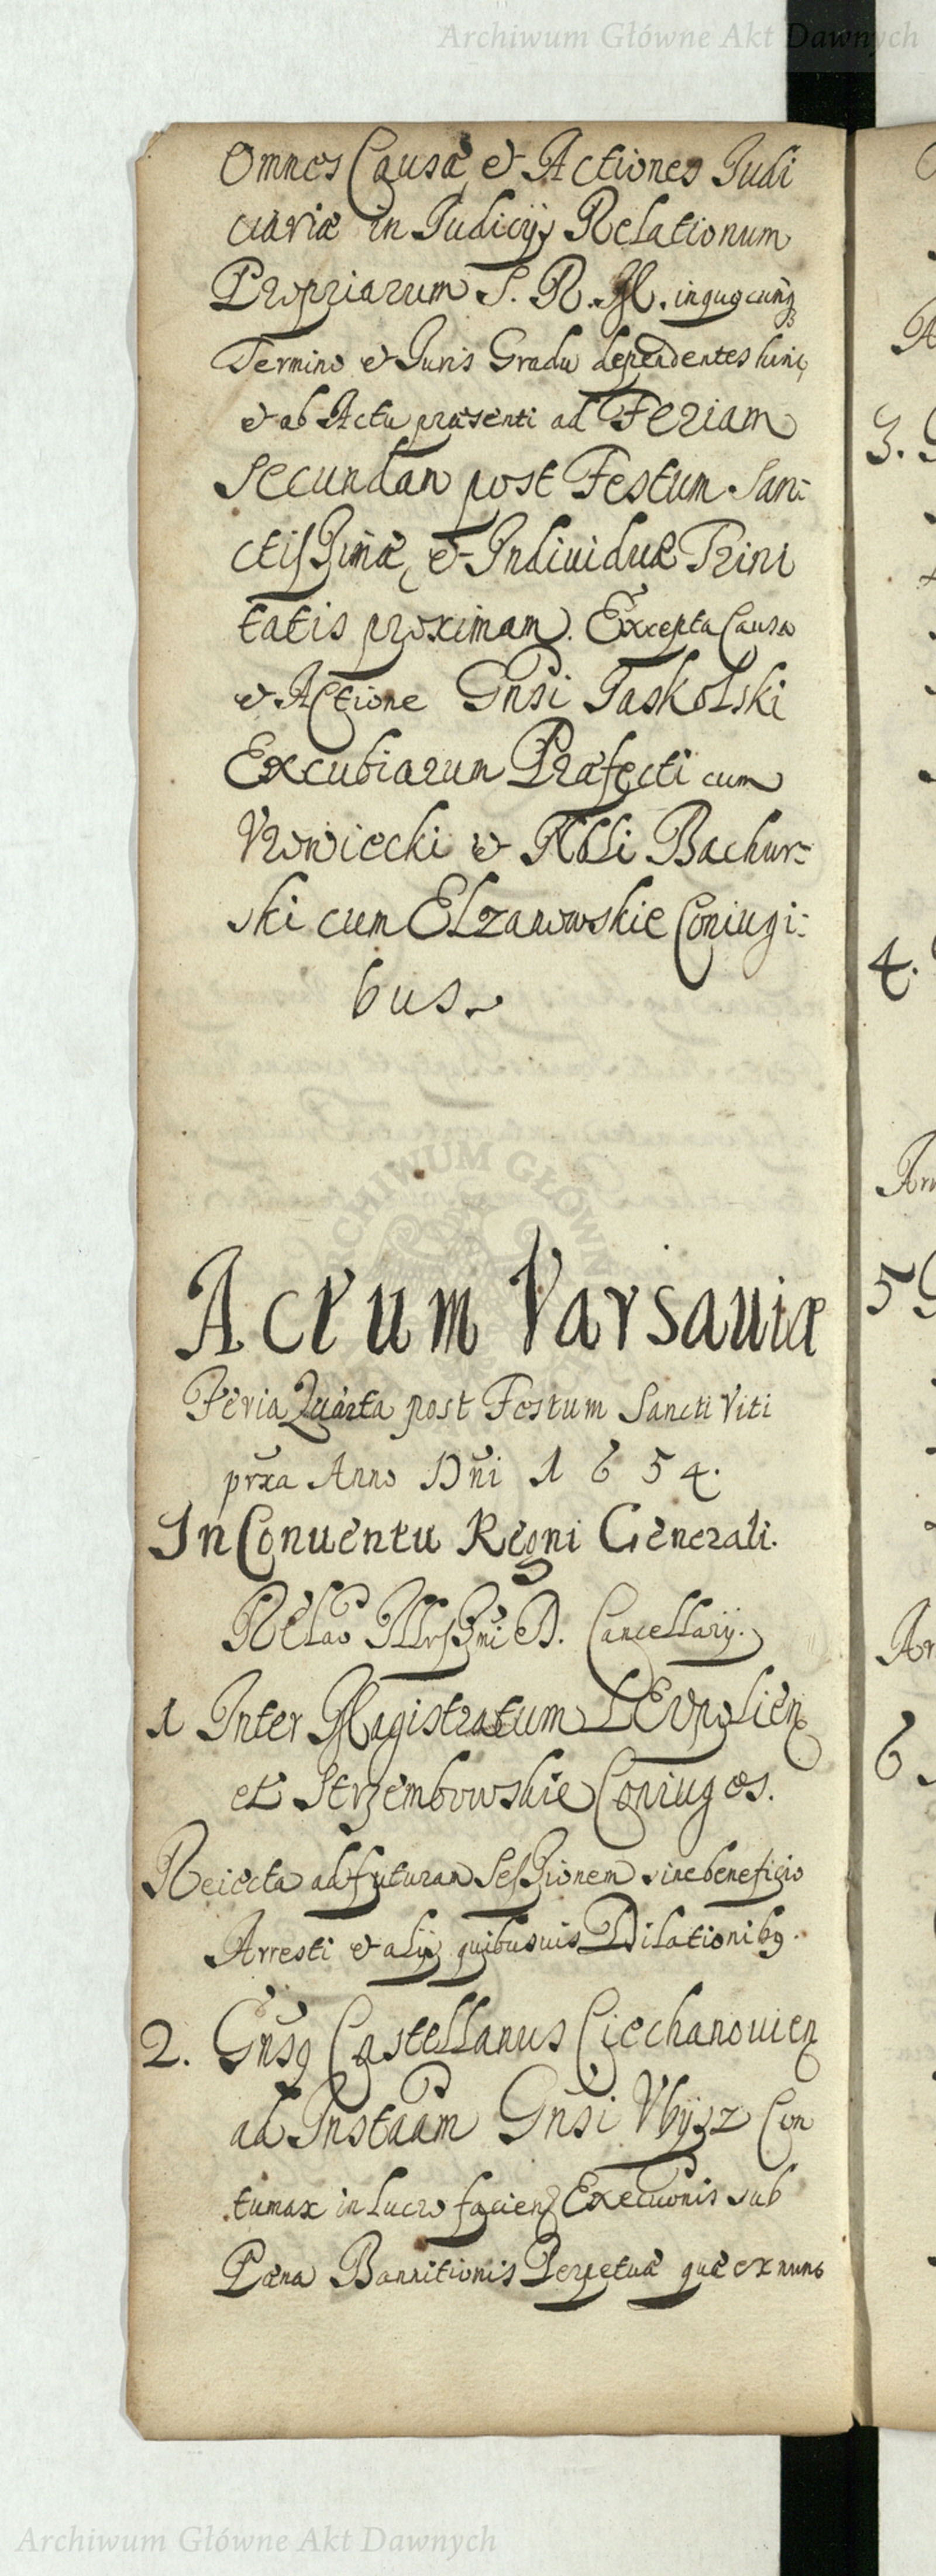 Archiwum Główne Akt Dawnych
Omnes Causæ et Actiones Judi
ciariæ in Judicijs Relationum
Propriarum S. R. M. in quocunq3
Termino et Juris Gradu dependentes hinc
et ab Actu præsenti ad Feriam
Secundam post Festum San:
ctissimæ et Individuæ Trini
tatis proximam. Excepta Causa
et Actione Gnsi Jaskolski
Excubiarum Præfecti cum
Vrowiecki et Nbli Bachur:
ski cum Elzanowskie Coniugi:
bus.
ARCHIWUM GŁÓWN
Actum Varsauiæ
Feria Quarta post Festum Sancti Viti
prxa Anno Dni 1654.
In Conuentu Regni Generali.
Relao Illrssmi D. Cancellarij.
1 Inter Magistratum LEopolien
et Strzembowskie Coniuges.
Reiecta ad futuram Sessionem sine beneficio
Arresti et alijs quibusuis Dilationibq.
2. Gnsq Castellanus Ciechanouien
ad Instaam Gnsi Vbysz Con
tumax in Lucro facien Execuonis sub
Pæna Bannitionis Perpetuæ quæ ex nunc
3.
4.
5
6
Archiwum Główne Akt Dawnych